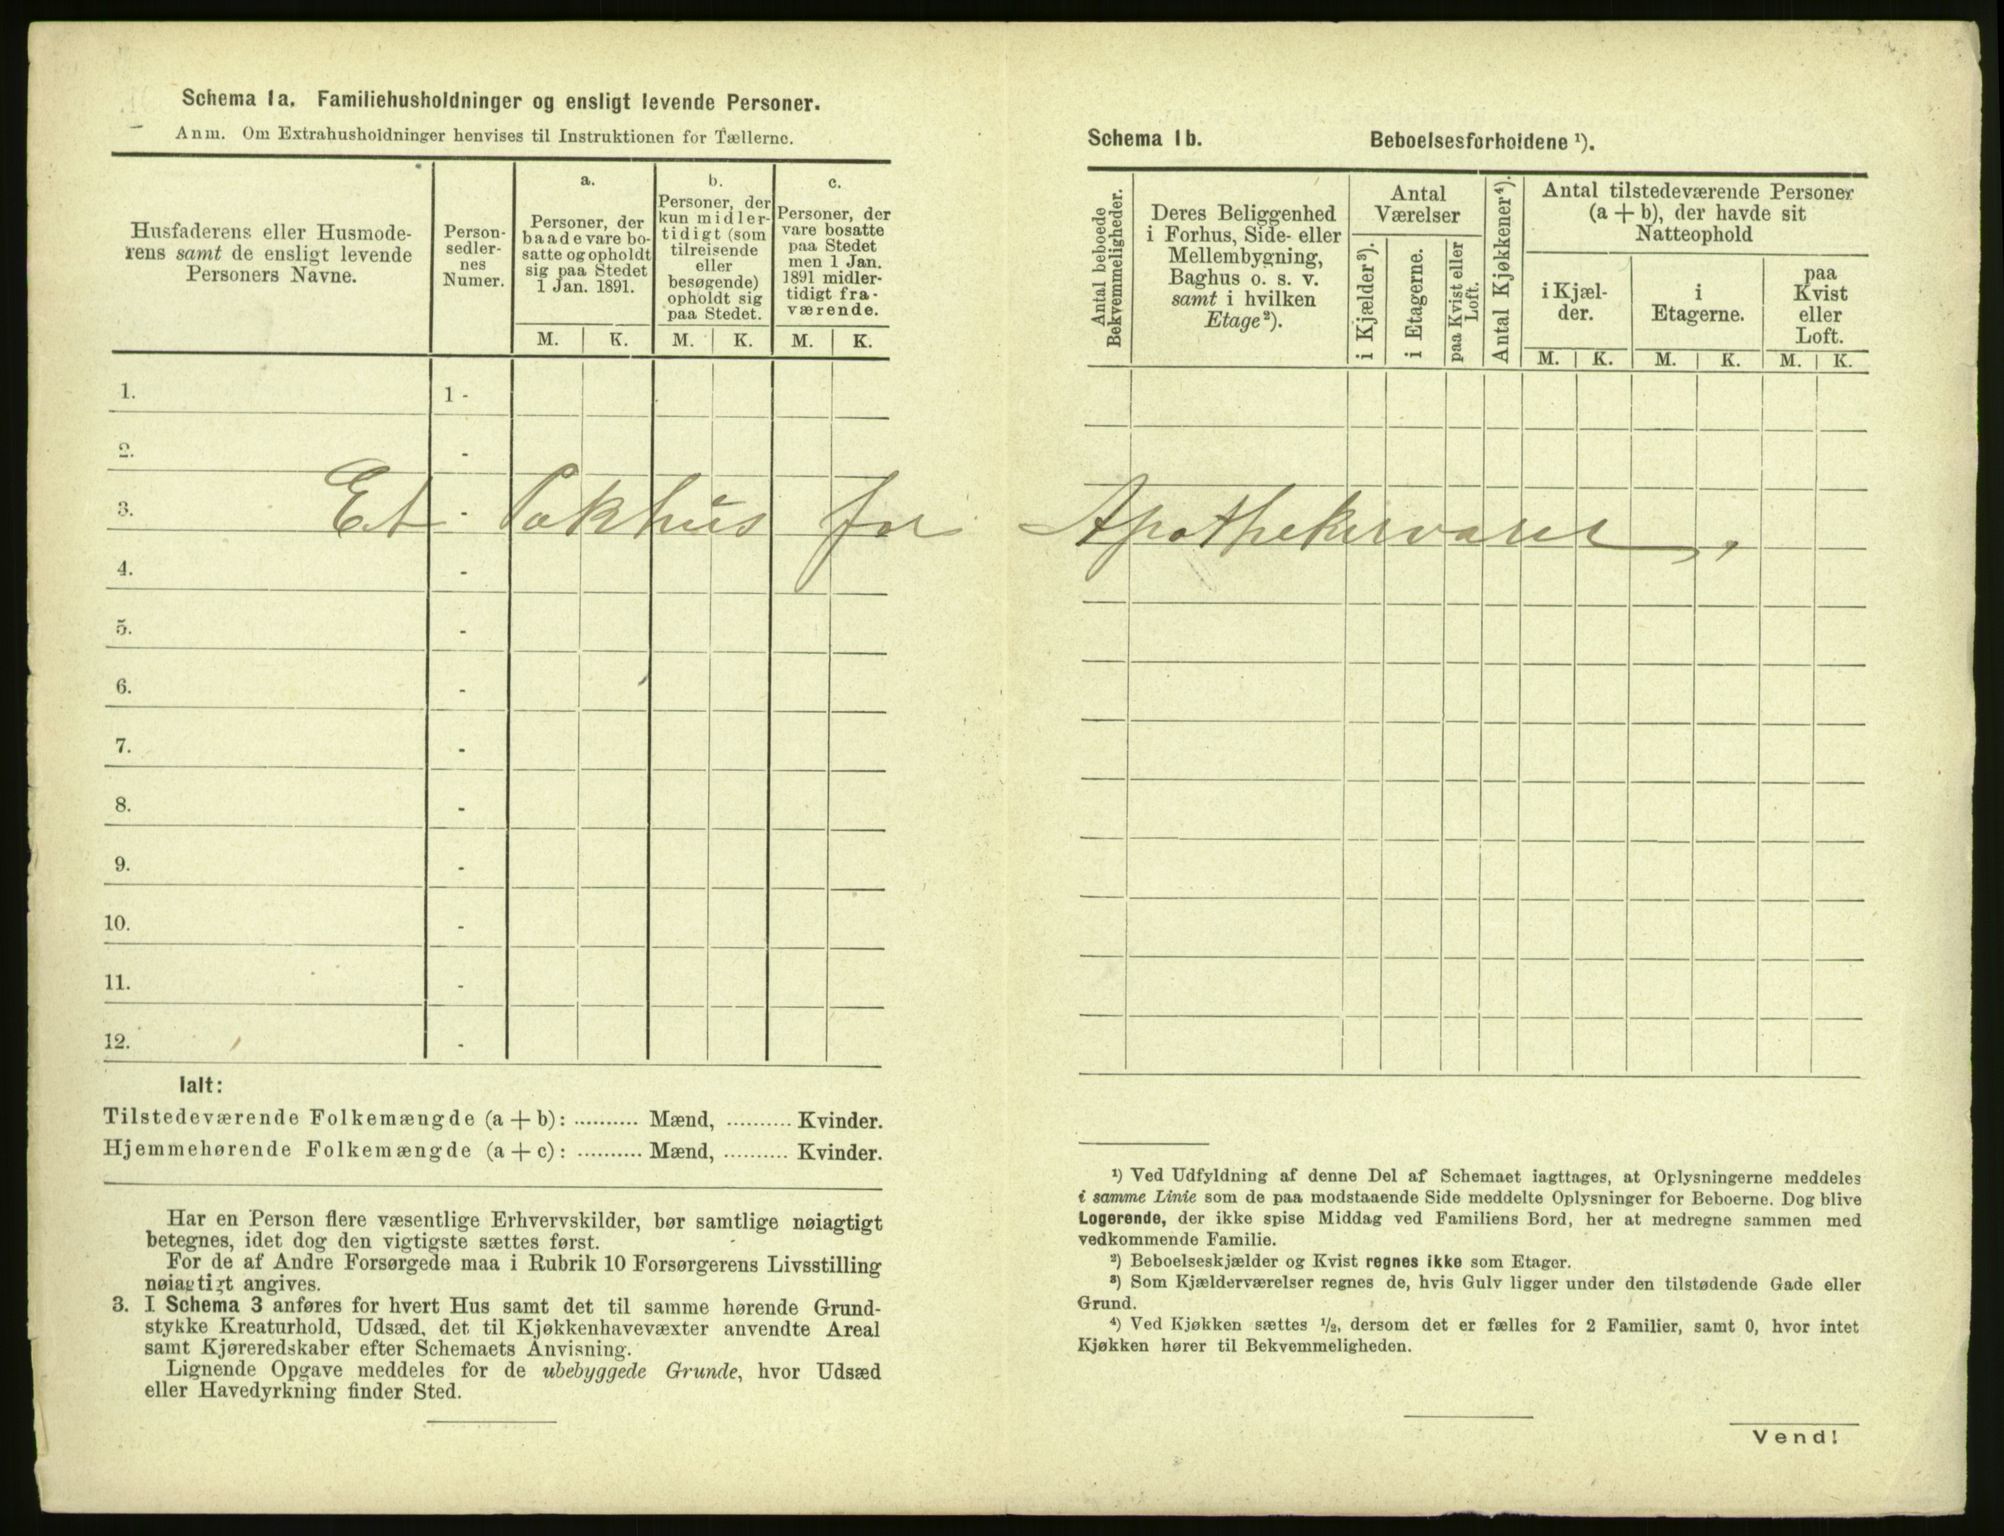 Schema 1a. Familiehusholdninger og ensligt levende Personer.
Anm. Om Extrahusholdninger henvises til Instruktionen for Tællerne.
Husfaderens eller Husmode-
rens samt de ensligt levende
Personers Navne.
Person-
sedler-
nes
Numer.
a.
Personer, der
baade vare bo-
satte og opholdt
sig paa Stedet
1 Jan. 1891.
b.
Personer, der
kun midler-
tidigt (som
tilreisende
eller
besøgende)
opholdt sig
paa Stedet.
c.
Personer, der
vare bosatte
paa Stedet
men 1 Jan.
1891 midler-
tidigt fra-
værende.
M. K. M. K. M. K.
1. 1 -
2. -
3. -
Et Pakhus for Apothekervarer.
4. -
5. -
6. -
7. -
8. -
9. -
10. -
11. -
12. -
Ialt:
Tilstedeværende Folkemængde (a + b): .......... Mænd, .......... Kvinder.
Hjemmehørende Folkemængde (a + c): .......... Mænd, .......... Kvinder.
Har en Person flere væsentlige Erhvervskilder, bør samtlige nøiagtigt
betegnes, idet dog den vigtigste sættes først.
For de af Andre Forsørgede maa i Rubrik 10 Forsørgerens Livsstilling
nøiagtigt angives.
3. I Schema 3 anføres for hvert Hus samt det til samme hørende Grund-
stykke Kreaturhold, Udsæd, det til Kjøkkenhavevæxter anvendte Areal
samt Kjøreredskaber efter Schemaets Anvisning.
Lignende Opgave meddeles for de ubebyggede Grunde, hvor Udsæd
eller Havedyrkning finder Sted.
Schema 1b. Beboelsesforholdene ¹).
Antal beboede
Bekvemmeligheder.
Deres Beliggenhed
i Forhus, Side- eller
Mellembygning,
Baghus o. s. v.
samt i hvilken
Etage²).
Antal
Værelser
i Kjælder³).
i Etagerne.
paa Kvist eller
Loft.
Antal Kjøkkener⁴).
Antal tilstedeværende Personer
(a + b), der havde sit
Natteophold
i Kjæl-
der.
i
Etagerne.
paa
Kvist
eller
Loft.
M. K. M. K. M. K.
¹) Ved Udfyldning af denne Del af Schemaet iagttages, at Oplysningerne meddeles
i samme Linie som de paa modstaaende Side meddelte Oplysninger for Beboerne. Dog blive
Logerende, der ikke spise Middag ved Familiens Bord, her at medregne sammen med
vedkommende Familie.
²) Beboelseskjælder og Kvist regnes ikke som Etager.
³) Som Kjælderværelser regnes de, hvis Gulv ligger under den tilstødende Gade eller
Grund.
⁴) Ved Kjøkken sættes ½, dersom det er fælles for 2 Familier, samt 0, hvor intet
Kjøkken hører til Bekvemmeligheden.
Vend!